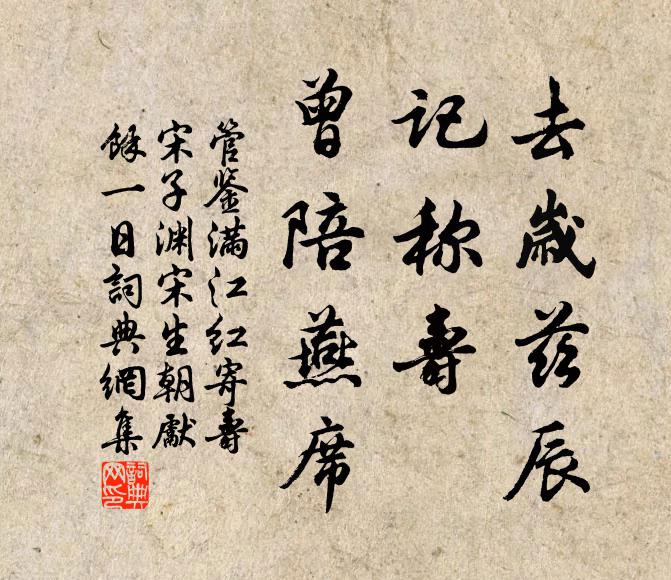 去歲茲辰
記称壽
曾陪燕席
管鉴满江红寄壽
宋子渊宋生朝獻
餘一日詞典網集
詞典网印